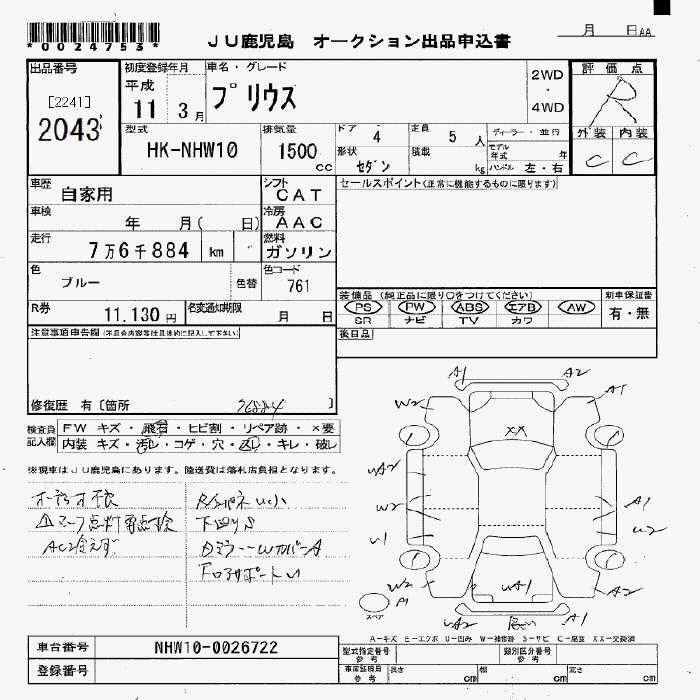 *0024753*
JU鹿児島 オークション出品申込書
月 日 AA
出品番号
[2241]
2043
初度登録年月
平成
11 3月
車名・グレード
プリウス
2WD
・
4WD
評価点
R
外装 内装
C C
型式
HK-NHW10
排気量
1500
cc
ドア 4
定員 5 人
ディーラー・並行
形状 セダン
積載 kg
モデル年式 年
ハンドル 左・右
車歴
自家用
シフト
CAT
セールスポイント(正常に機能するものに限ります)
車検
年 月( 日)
冷房
AAC
走行
7万6千884 km
燃料
ガソリン
色
ブルー
色替
色コード
761
R券
11.130円
名変通知期限
月 日
装備品(純正品に限り○をつけてください)
PS PW ABS エアB AW
SR ナビ TV カワ
新車保証書
有・無
後日品
注意事項申告欄(不具合内容等は具体的に記入して下さい)
修復歴 有〔箇所 76884 〕
検査員記入欄
FW キズ・飛石・ヒビ割・リペア跡・×要
内装 キズ・汚レ・コゲ・穴・返し・キレ・破レ
※現車はJU鹿児島にあります。陸送費は落札店負担となります。
A1 A2
W2 A1
XX
uA2
W2 A1
u1 u2
W2 A2
A1
uA1
スペア
uA2 A1
A-キズ E-エクボ U-凹み W-補修跡 S-サビ C-腐食 XX-交換済
車台番号 NHW10-0026722
登録番号
型式指定番号 参考
類別区分番号 参考
車庫証明用 参考 長さ cm 幅 cm 高さ cm